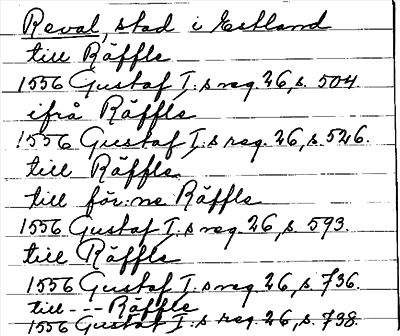 Reval, stad i Estland
till Räffle
1556 Gustaf I.s reg. 26, s. 504.
ifrå Räffle
1556 Gustaf I.s reg. 26, s. 526.
till Räffle
till för:ne Räffle
1556 Gustaf I.s reg. 26, s. 593.
till Räffle
1556 Gustaf I.s reg. 26, s. 736.
till --- Räffle
1556 Gustaf I.s reg. 26, s. 738.